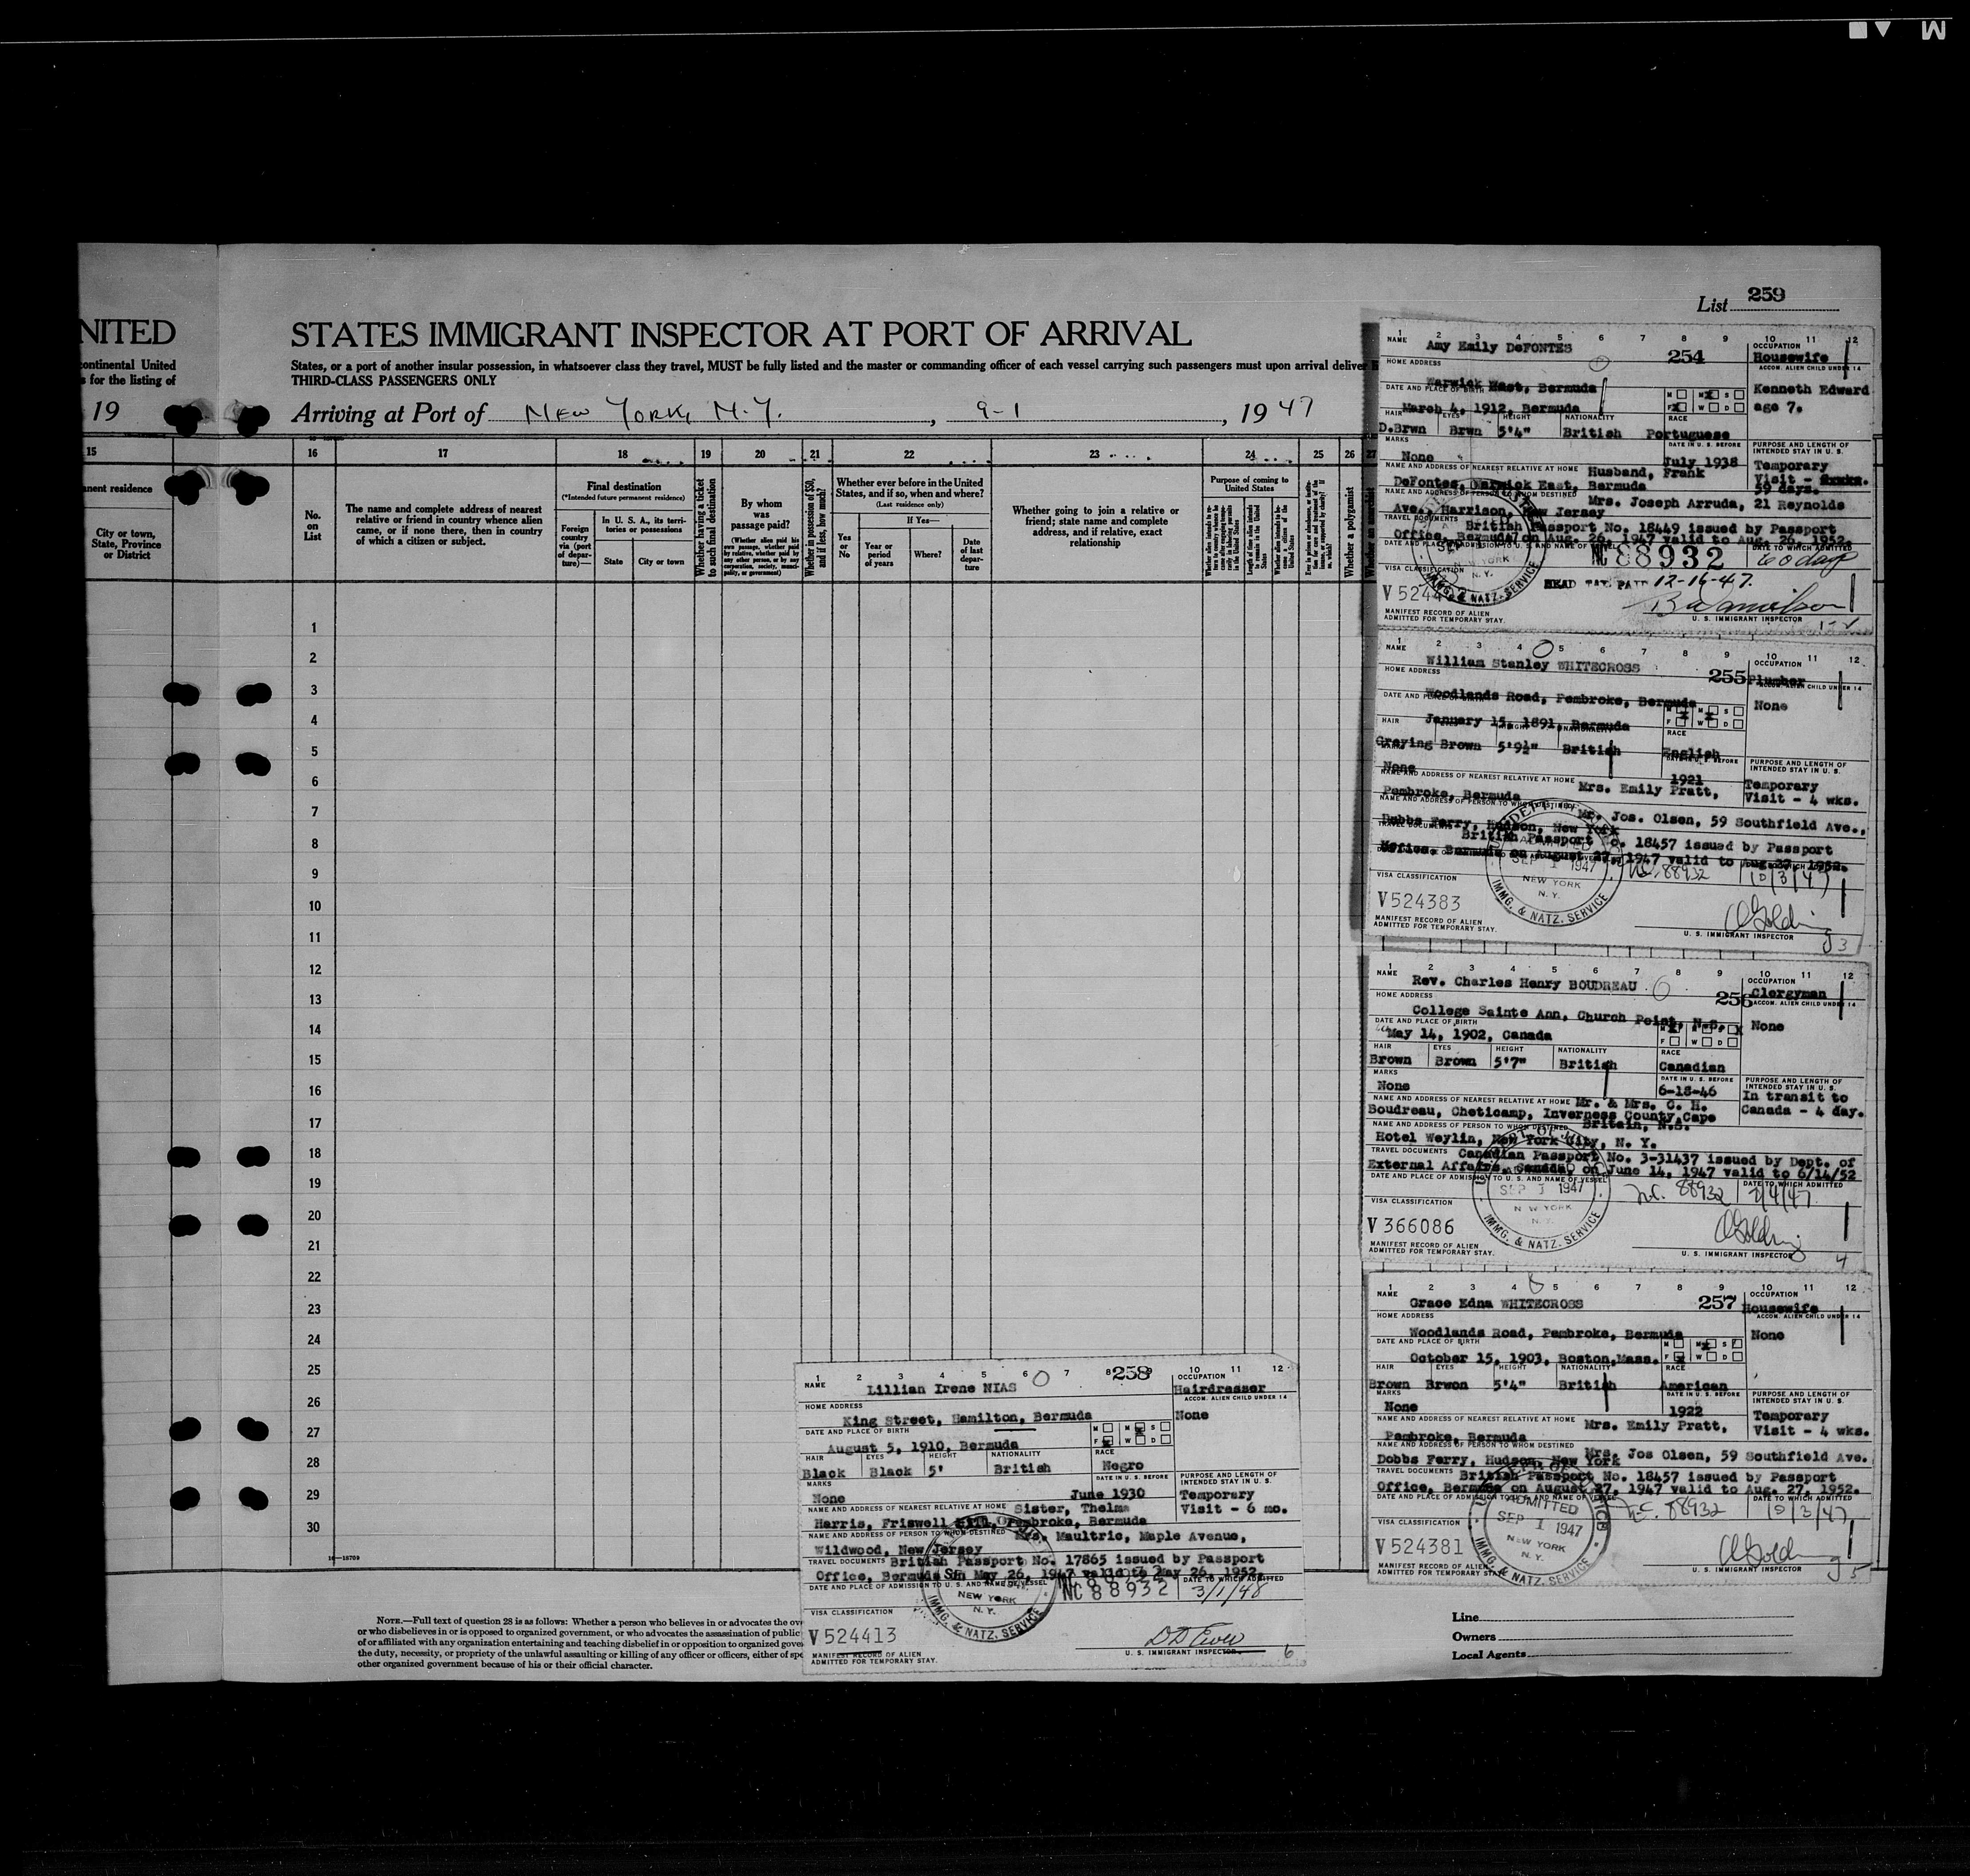 List 259
NITED
STATES IMMIGRANT INSPECTOR AT PORT OF ARRIVAL
ontinental United
s for the listing of
States, or a port of another insular possession, in whatsoever class they travel, MUST be fully listed and the master or commanding officer of each vessel carrying such passengers must upon arrival deliver
THIRD-CLASS PASSENGERS ONLY
19
Arriving at Port of New York, N.Y. , 9-1 , 1947
15
16 17 18 19 20 21 22 23 24 25 26 27
anent residence
City or town,
State, Province
or District
No.
on
List
The name and complete address of nearest
relative or friend in country whence alien
came, or if none there, then in country
of which a citizen or subject.
Final destination
(*Intended future permanent residence)
Foreign
country
via (port
of depar-
ture)—
In U. S. A., its terri-
tories or possessions
State
City or town
Whether having a ticket
to such final destination
By whom
was
passage paid?
(Whether alien paid his
own passage, whether paid
by relative, whether paid by
any other person, or by any
corporation, society, munici-
pality, or government)
Whether in possession of $50,
and if less, how much?
Whether ever before in the United
States, and if so, when and where?
(Last residence only)
Yes
or
No
If Yes—
Year or
period
of years
Where?
Date
of last
depar-
ture
Whether going to join a relative or
friend; state name and complete
address, and if relative, exact
relationship
Purpose of coming to
United States
Whether a polygamist
1
2
3
4
5
6
7
8
9
10
11
12
13
14
15
16
17
18
19
20
21
22
23
24
25
26
27
28
29
30
16—18709
NOTE.—Full text of question 28 is as follows: Whether a person who believes in or advocates the ove
or who disbelieves in or is opposed to organized government, or who advocates the assassination of public
of or affiliated with any organization entertaining and teaching disbelief in or opposition to organized gove
the duty, necessity, or propriety of the unlawful assaulting or killing of any officer or officers, either of spe
other organized government because of his or their official character.
1 2 3 4 5 6 7 8 9 10 11 12
NAME Amy Emily DeFONTES 254
OCCUPATION Housewife
HOME ADDRESS
ACCOM. ALIEN CHILD UNDER 14
Warwick East, Bermuda
Kenneth Edward
age 7.
DATE AND PLACE OF BIRTH
March 4, 1912, Bermuda
M M S
F W D
HAIR EYES HEIGHT NATIONALITY RACE
D.Brwn Brwn 5'4" British Portuguese
MARKS
None
DATE IN U. S. BEFORE
July 1938
PURPOSE AND LENGTH OF
INTENDED STAY IN U. S.
Temporary
Visit -
59 days.
NAME AND ADDRESS OF NEAREST RELATIVE AT HOME Husband, Frank
DeFontes, Warwick East, Bermuda
NAME AND ADDRESS OF PERSON TO WHOM DESTINED Mrs. Joseph Arruda, 21 Reynolds
Ave., Harrison, New Jersey
TRAVEL DOCUMENTS British Passport No. 18449 issued by Passport
Office, Bermuda on Aug. 26, 1947 valid to Aug. 26, 1952.
DATE AND PLACE OF ADMISSION TO U. S. AND NAME OF
NC 88932
DATE TO WHICH ADMITTED
60 days
VISA CLASSIFICATION
HEAD TAX PAID 12-16-47.
V 5244
IMMG. & NATZ. SERVICE
MANIFEST RECORD OF ALIEN
ADMITTED FOR TEMPORARY STAY.
U. S. IMMIGRANT INSPECTOR
1 2 3 4 5 6 7 8 9 10 11 12
NAME William Stanley WHITECROSS 255
OCCUPATION Plumber
HOME ADDRESS
ACCOM. ALIEN CHILD UNDER 14
Woodlands Road, Pembroke, Bermuda
None
DATE AND PLACE OF BIRTH
January 15, 1891, Bermuda
M M S
F W D
HAIR
RACE
Graying Brown 5'9½" British English
None
1921
PURPOSE AND LENGTH OF
INTENDED STAY IN U. S.
Temporary
Visit - 4 wks.
NAME AND ADDRESS OF NEAREST RELATIVE AT HOME Mrs. Emily Pratt,
Pembroke, Bermuda
NAME AND ADDRESS OF PERSON TO WHOM DESTINED Mr. Jos. Olsen, 59 Southfield Ave.,
Dobbs Ferry, Hudson, New York
British Passport No. 18457 issued by Passport
Office, Bermuda on August 27, 1947 valid to Aug. 27, 1952.
N.C. 88932
10/3/47
ADMITTED
SEP 1 1947
NEW YORK
N. Y.
IMMG. & NATZ. SERVICE
VISA CLASSIFICATION
V 524383
MANIFEST RECORD OF ALIEN
ADMITTED FOR TEMPORARY STAY.
U. S. IMMIGRANT INSPECTOR
3
1 2 3 4 5 6 7 8 9 10 11 12
NAME Rev. Charles Henry BOUDREAU 256
OCCUPATION Clergyman
HOME ADDRESS
ACCOM. ALIEN CHILD UNDER 14
College Sainte Ann, Church Point, N.S.
None
DATE AND PLACE OF BIRTH
May 14, 1902, Canada
HAIR EYES HEIGHT NATIONALITY RACE
Brown Brown 5'7" British Canadian
MARKS
None
DATE IN U. S. BEFORE
6-18-46
PURPOSE AND LENGTH OF
INTENDED STAY IN U. S.
In transit to
Canada - 4 day.
NAME AND ADDRESS OF NEAREST RELATIVE AT HOME Mr. & Mrs. C. H.
Boudreau, Cheticamp, Inverness County, Cape
Britain, N.S.
NAME AND ADDRESS OF PERSON TO WHOM DESTINED
Hotel Weylin, New York City, N. Y.
TRAVEL DOCUMENTS Canadian Passport No. 3-31437 issued by Dept. of
External Affairs, Canada, on June 14, 1947 valid to 6/14/52
DATE AND PLACE OF ADMISSION TO U. S. AND NAME OF VESSEL
DATE TO WHICH ADMITTED
SEP 1 1947
NEW YORK
N. Y.
IMMG. & NATZ. SERVICE
N.C. 88932
VISA CLASSIFICATION
V 366086
MANIFEST RECORD OF ALIEN
ADMITTED FOR TEMPORARY STAY.
U. S. IMMIGRANT INSPECTOR
4
1 2 3 4 5 6 7 8 9 10 11 12
NAME Grace Edna WHITECROSS 257
OCCUPATION Housewife
HOME ADDRESS
ACCOM. ALIEN CHILD UNDER 14
Woodlands Road, Pembroke, Bermuda
None
DATE AND PLACE OF BIRTH
October 15, 1903, Boston, Mass.
HAIR EYES HEIGHT NATIONALITY RACE
Brown Brwon 5'4" British American
MARKS
None
DATE IN U. S. BEFORE
1922
PURPOSE AND LENGTH OF
INTENDED STAY IN U. S.
Temporary
Visit - 4 wks.
NAME AND ADDRESS OF NEAREST RELATIVE AT HOME Mrs. Emily Pratt,
Pembroke, Bermuda
NAME AND ADDRESS OF PERSON TO WHOM DESTINED Mrs. Jos Olsen, 59 Southfield Ave.
Dobbs Ferry, Hudson, New York
TRAVEL DOCUMENTS British Passport No. 18457 issued by Passport
Office, Bermuda on August 27, 1947 valid to Aug. 27, 1952.
DATE AND PLACE OF ADMISSION TO U. S. AND NAME OF VESSEL
DATE TO WHICH ADMITTED
N.C. 88932
10/3/47
ADMITTED
SEP 1 1947
NEW YORK
N. Y.
IMMG. & NATZ. SERVICE
VISA CLASSIFICATION
V 524381
MANIFEST RECORD OF ALIEN
ADMITTED FOR TEMPORARY STAY.
U. S. IMMIGRANT INSPECTOR
5
1 2 3 4 5 6 7 8 9 10 11 12
NAME Lillian Irene NIAS 258
OCCUPATION Hairdresser
HOME ADDRESS
ACCOM. ALIEN CHILD UNDER 14
King Street, Hamilton, Bermuda
None
DATE AND PLACE OF BIRTH
August 5, 1910, Bermuda
M M S
F W D
HAIR EYES HEIGHT NATIONALITY RACE
Black Black 5' British Negro
MARKS
None
DATE IN U. S. BEFORE
June 1930
PURPOSE AND LENGTH OF
INTENDED STAY IN U. S.
Temporary
Visit - 6 mo.
NAME AND ADDRESS OF NEAREST RELATIVE AT HOME Sister, Thelma
Harris, Friswell Hill, Pembroke, Bermuda
NAME AND ADDRESS OF PERSON TO WHOM DESTINED Mrs. Maultric, Maple Avenue,
Wildwood, New Jersey
TRAVEL DOCUMENTS British Passport No. 17865 issued by Passport
Office, Bermuda on May 26, 1947 valid to May 26, 1952.
DATE AND PLACE OF ADMISSION TO U. S. AND NAME OF VESSEL
NC 88932
DATE TO WHICH ADMITTED
3/1/48
NEW YORK
N. Y.
IMMG. & NATZ. SERVICE
VISA CLASSIFICATION
V 524413
MANIFEST RECORD OF ALIEN
ADMITTED FOR TEMPORARY STAY.
U. S. IMMIGRANT INSPECTOR
6
Line
Owners
Local Agents